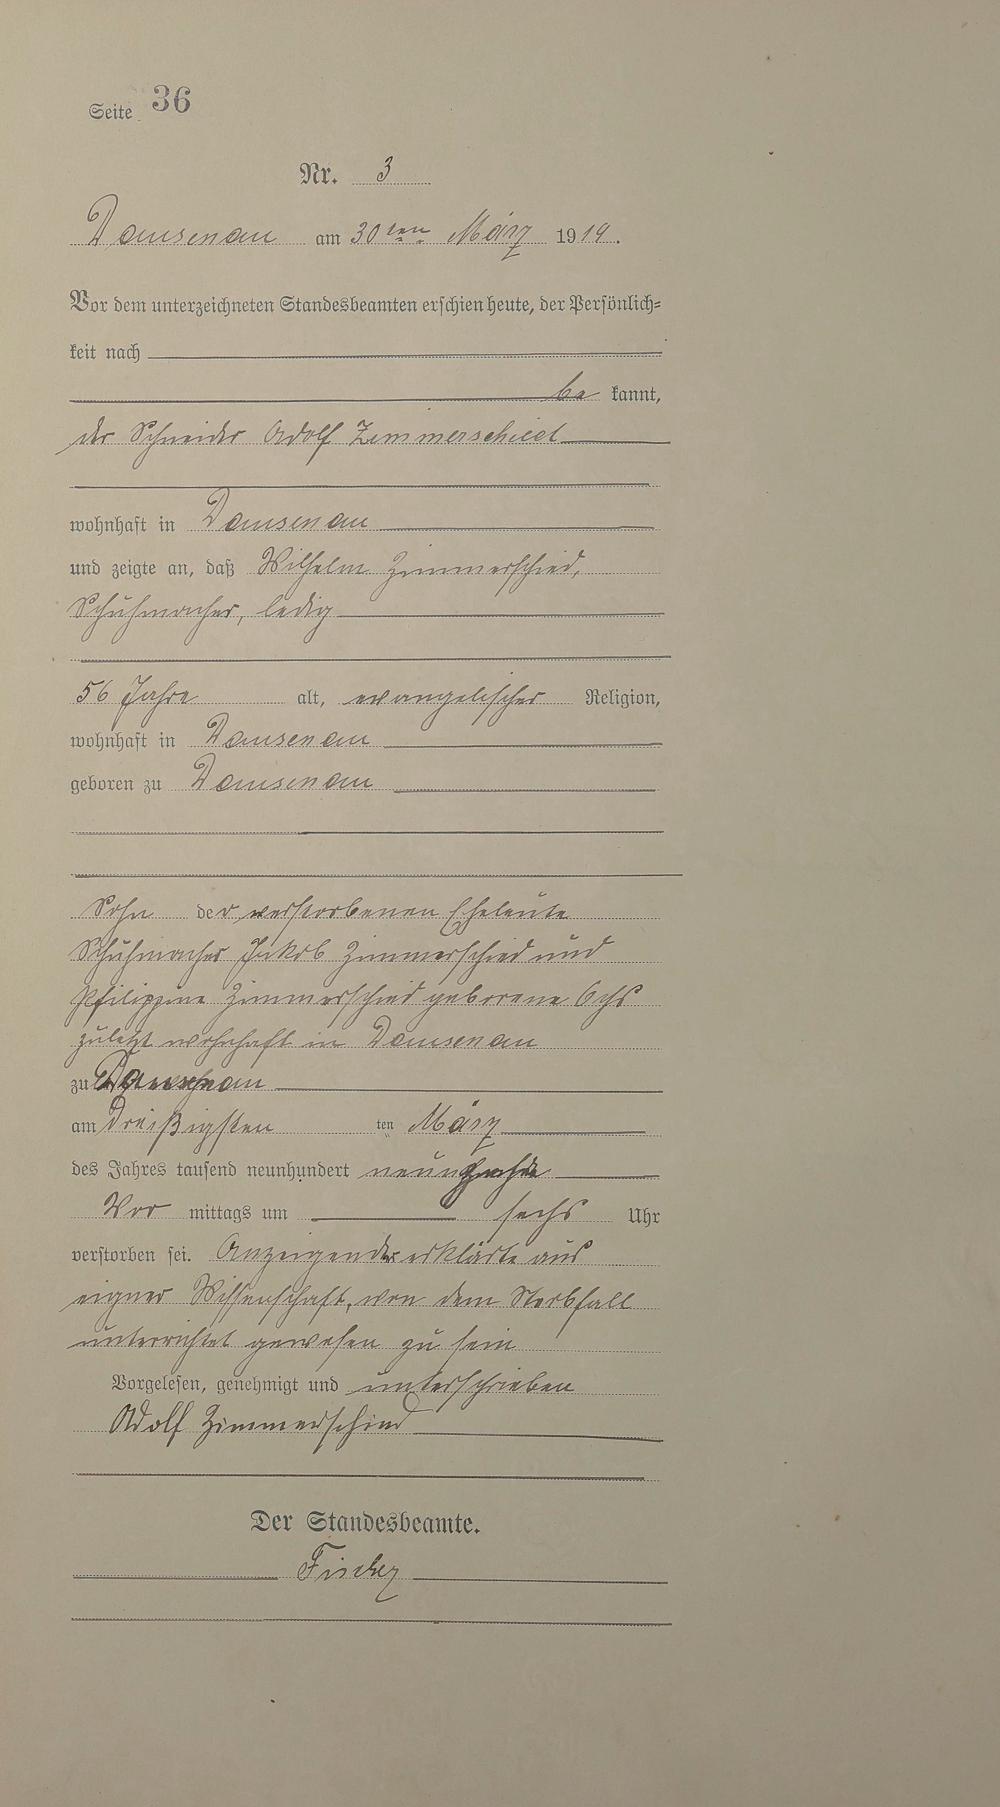 Seite 36
Nr. 3
Dausenau am 30ten März 1919.
Vor dem unterzeichneten Standesbeamten erschien heute, der Persönlich=
keit nach
be kannt,
der Schneider Adolf Zimmerschied
wohnhaft in Dausenau
und zeigte an, daß Wilhelm Zimmerschied,
Schuhmacher, ledig
56 Jahre alt, evangelischer Religion,
wohnhaft in Dausenau
geboren zu Dausenau
Sohn der verstorbenen Eheleute
Schuhmacher Jakob Zimmerschied und
Philippine Zimmerschied geborene Ochs
zuletzt wohnhaft in Dausenau
zu Dausenau
am Dreißigsten ten März
des Jahres tausend neunhundert neunzehn
Vor mittags um sechs Uhr
verstorben sei. Anzeigender erklärte aus
eigner Wissenschaft, von dem Sterbfall
unterrichtet gewesen zu sein
Vorgelesen, genehmigt und unterschrieben
Adolf Zimmerschied
Der Standesbeamte.